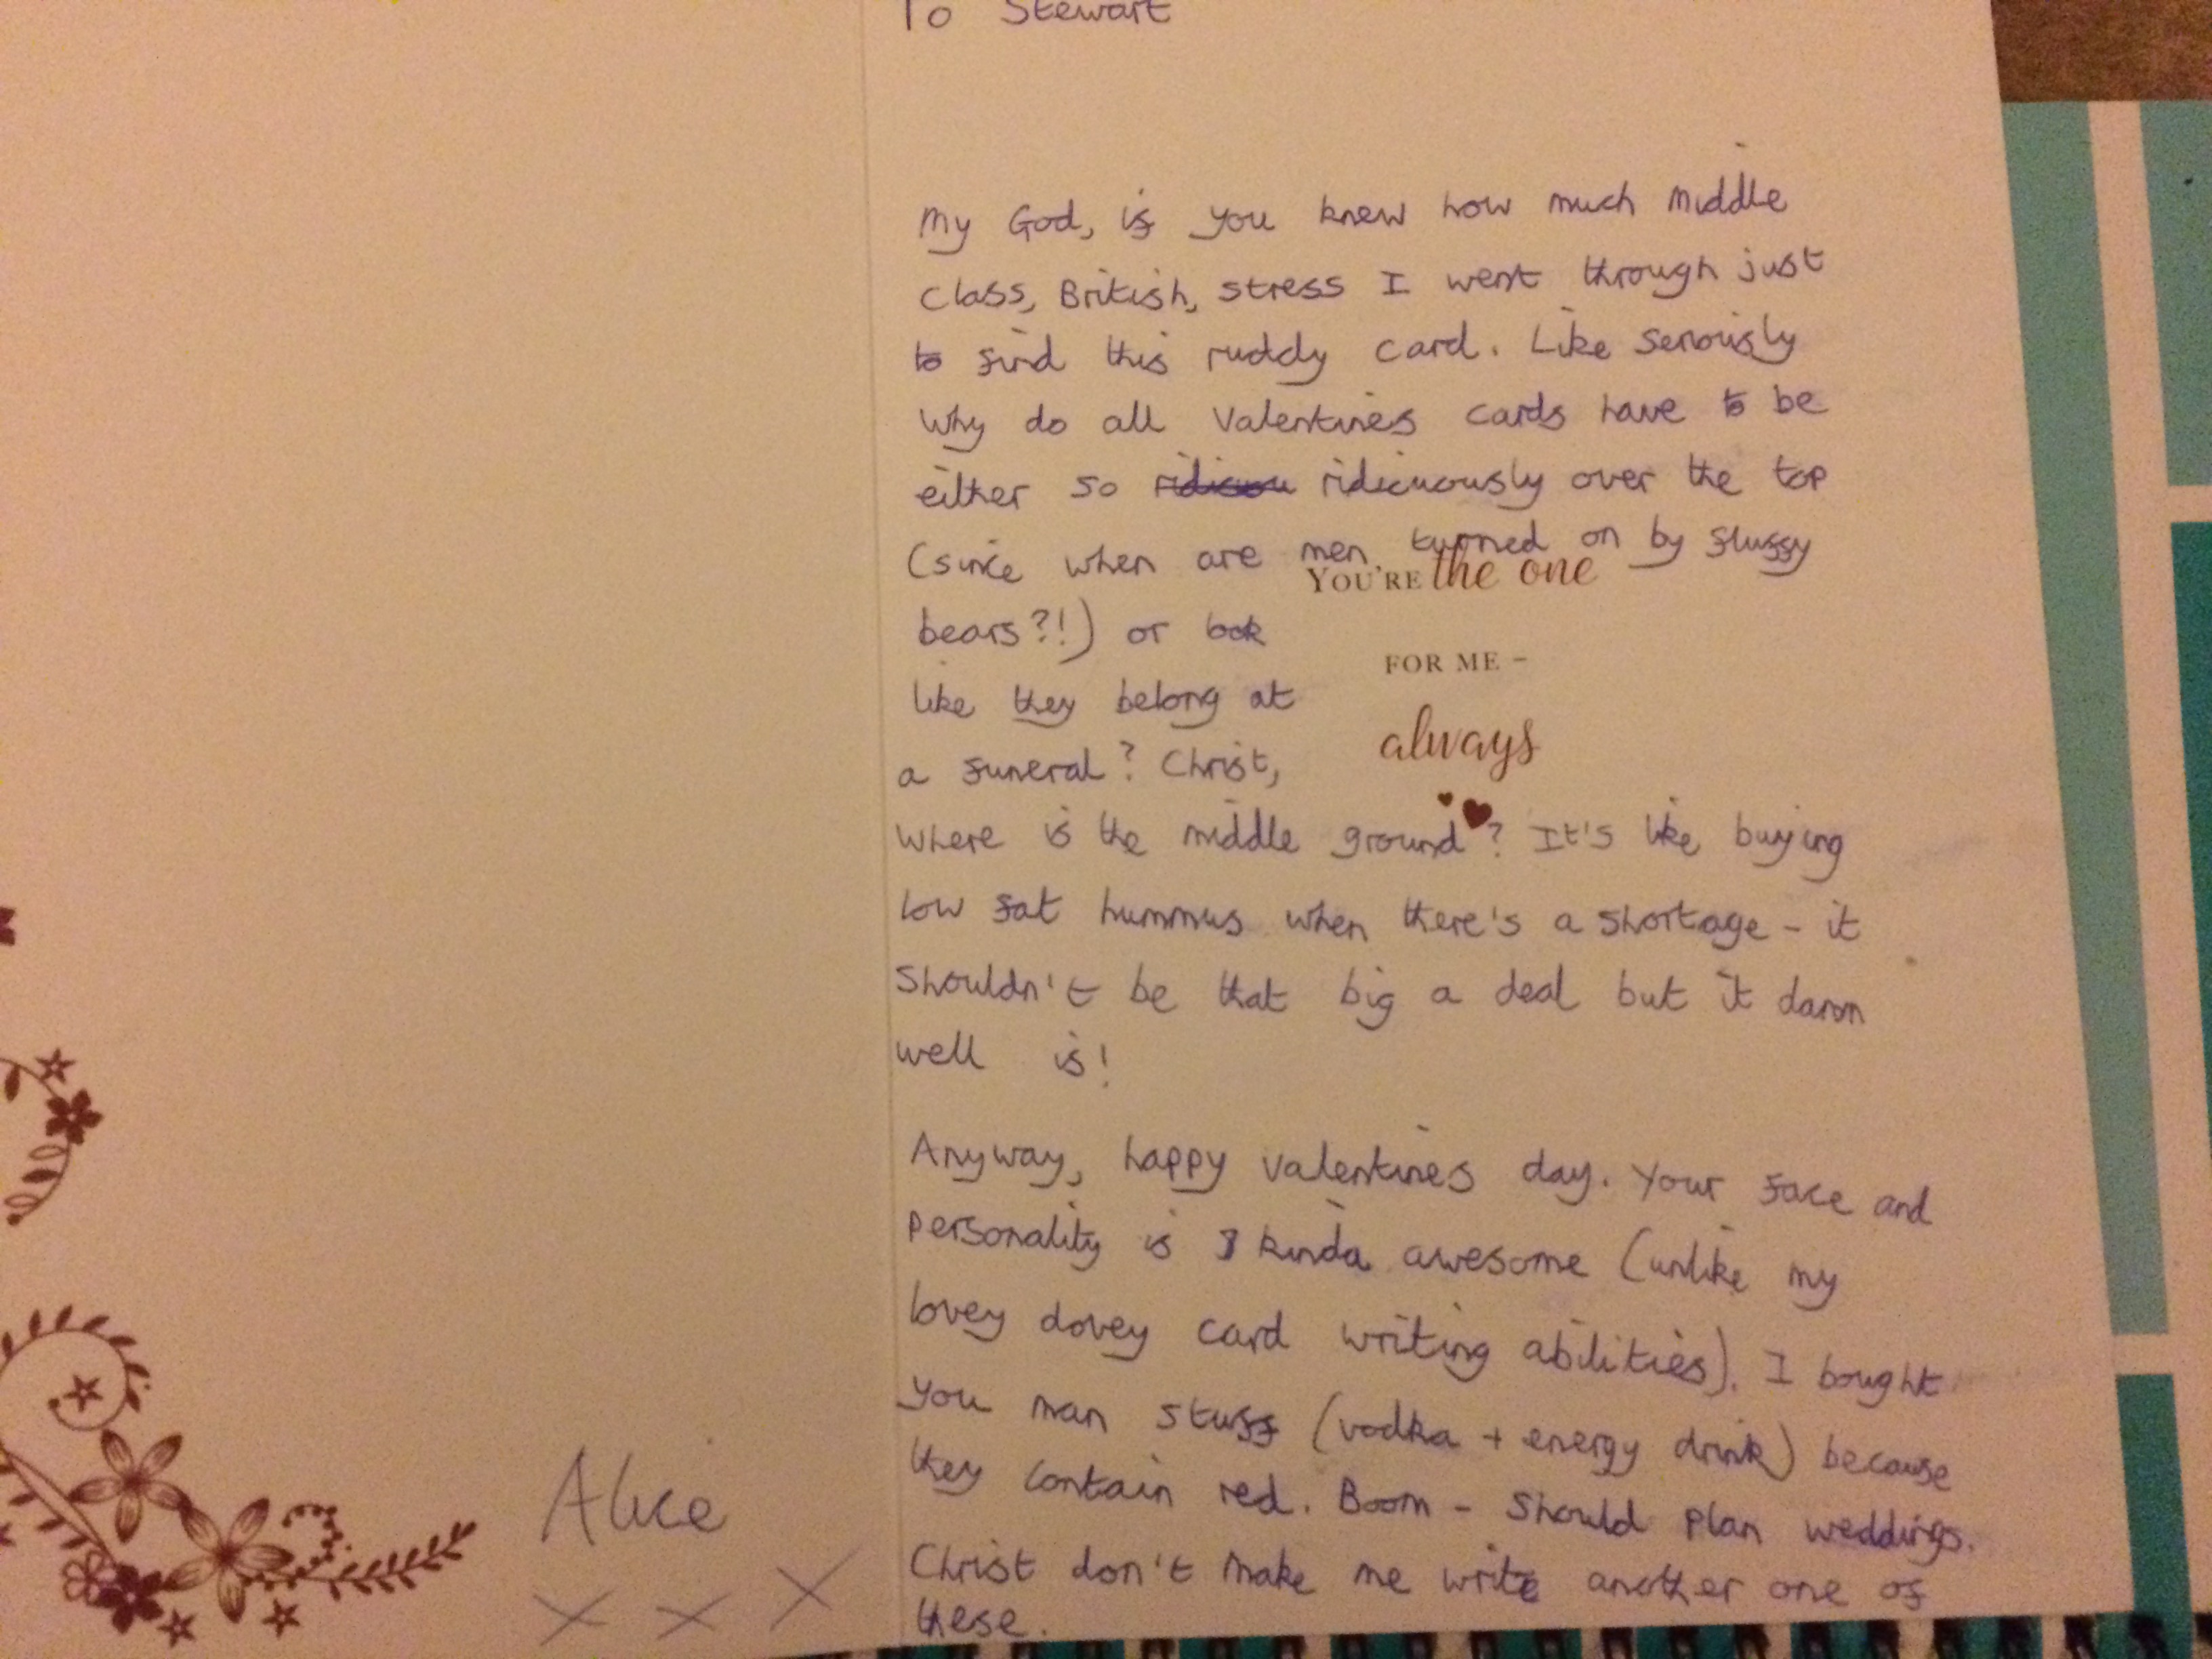 To Stewart
My God, if you knew how much middle
class, British, stress I went through just
to find this ruddy card. Like seriously
why do all Valentines cards have to be
either so ridiculously over the top
(since when are men turned on by fluffy
YOU'RE the one
bears?!) or look
FOR ME –
like they belong at
always
a funeral? Christ,
where is the middle ground? It's like buying
low fat hummus when there's a shortage - it
shouldn't be that big a deal but it damn
well is!
Anyway, happy valentines day. Your face and
personality is kinda awesome (unlike my
lovey dovey card writing abilities). I bought
you man stuff (vodka + energy drink) because
they contain red. Boom - should plan weddings.
Christ don't make me write another one of
these.
Alice
X X X